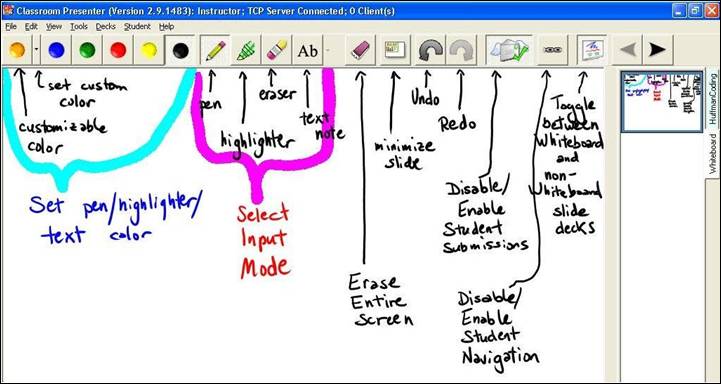 Classroom Presenter (Version 2.9.1483): Instructor; TCP Server Connected; 0 Client(s)
File Edit View Tools Decks Student Help
Ab
set custom
color
customizable
color
pen
highlighter
eraser
text
note
Set pen/highlighter/
text color
Select
Input
Mode
Erase
Entire
Screen
minimize
slide
Undo
Redo
Disable/
Enable
Student
Submissions
Disable/
Enable
Student
Navigation
Toggle
between
Whiteboard
and
non-
Whiteboard
slide
decks
HuffmanCoding
Whiteboard